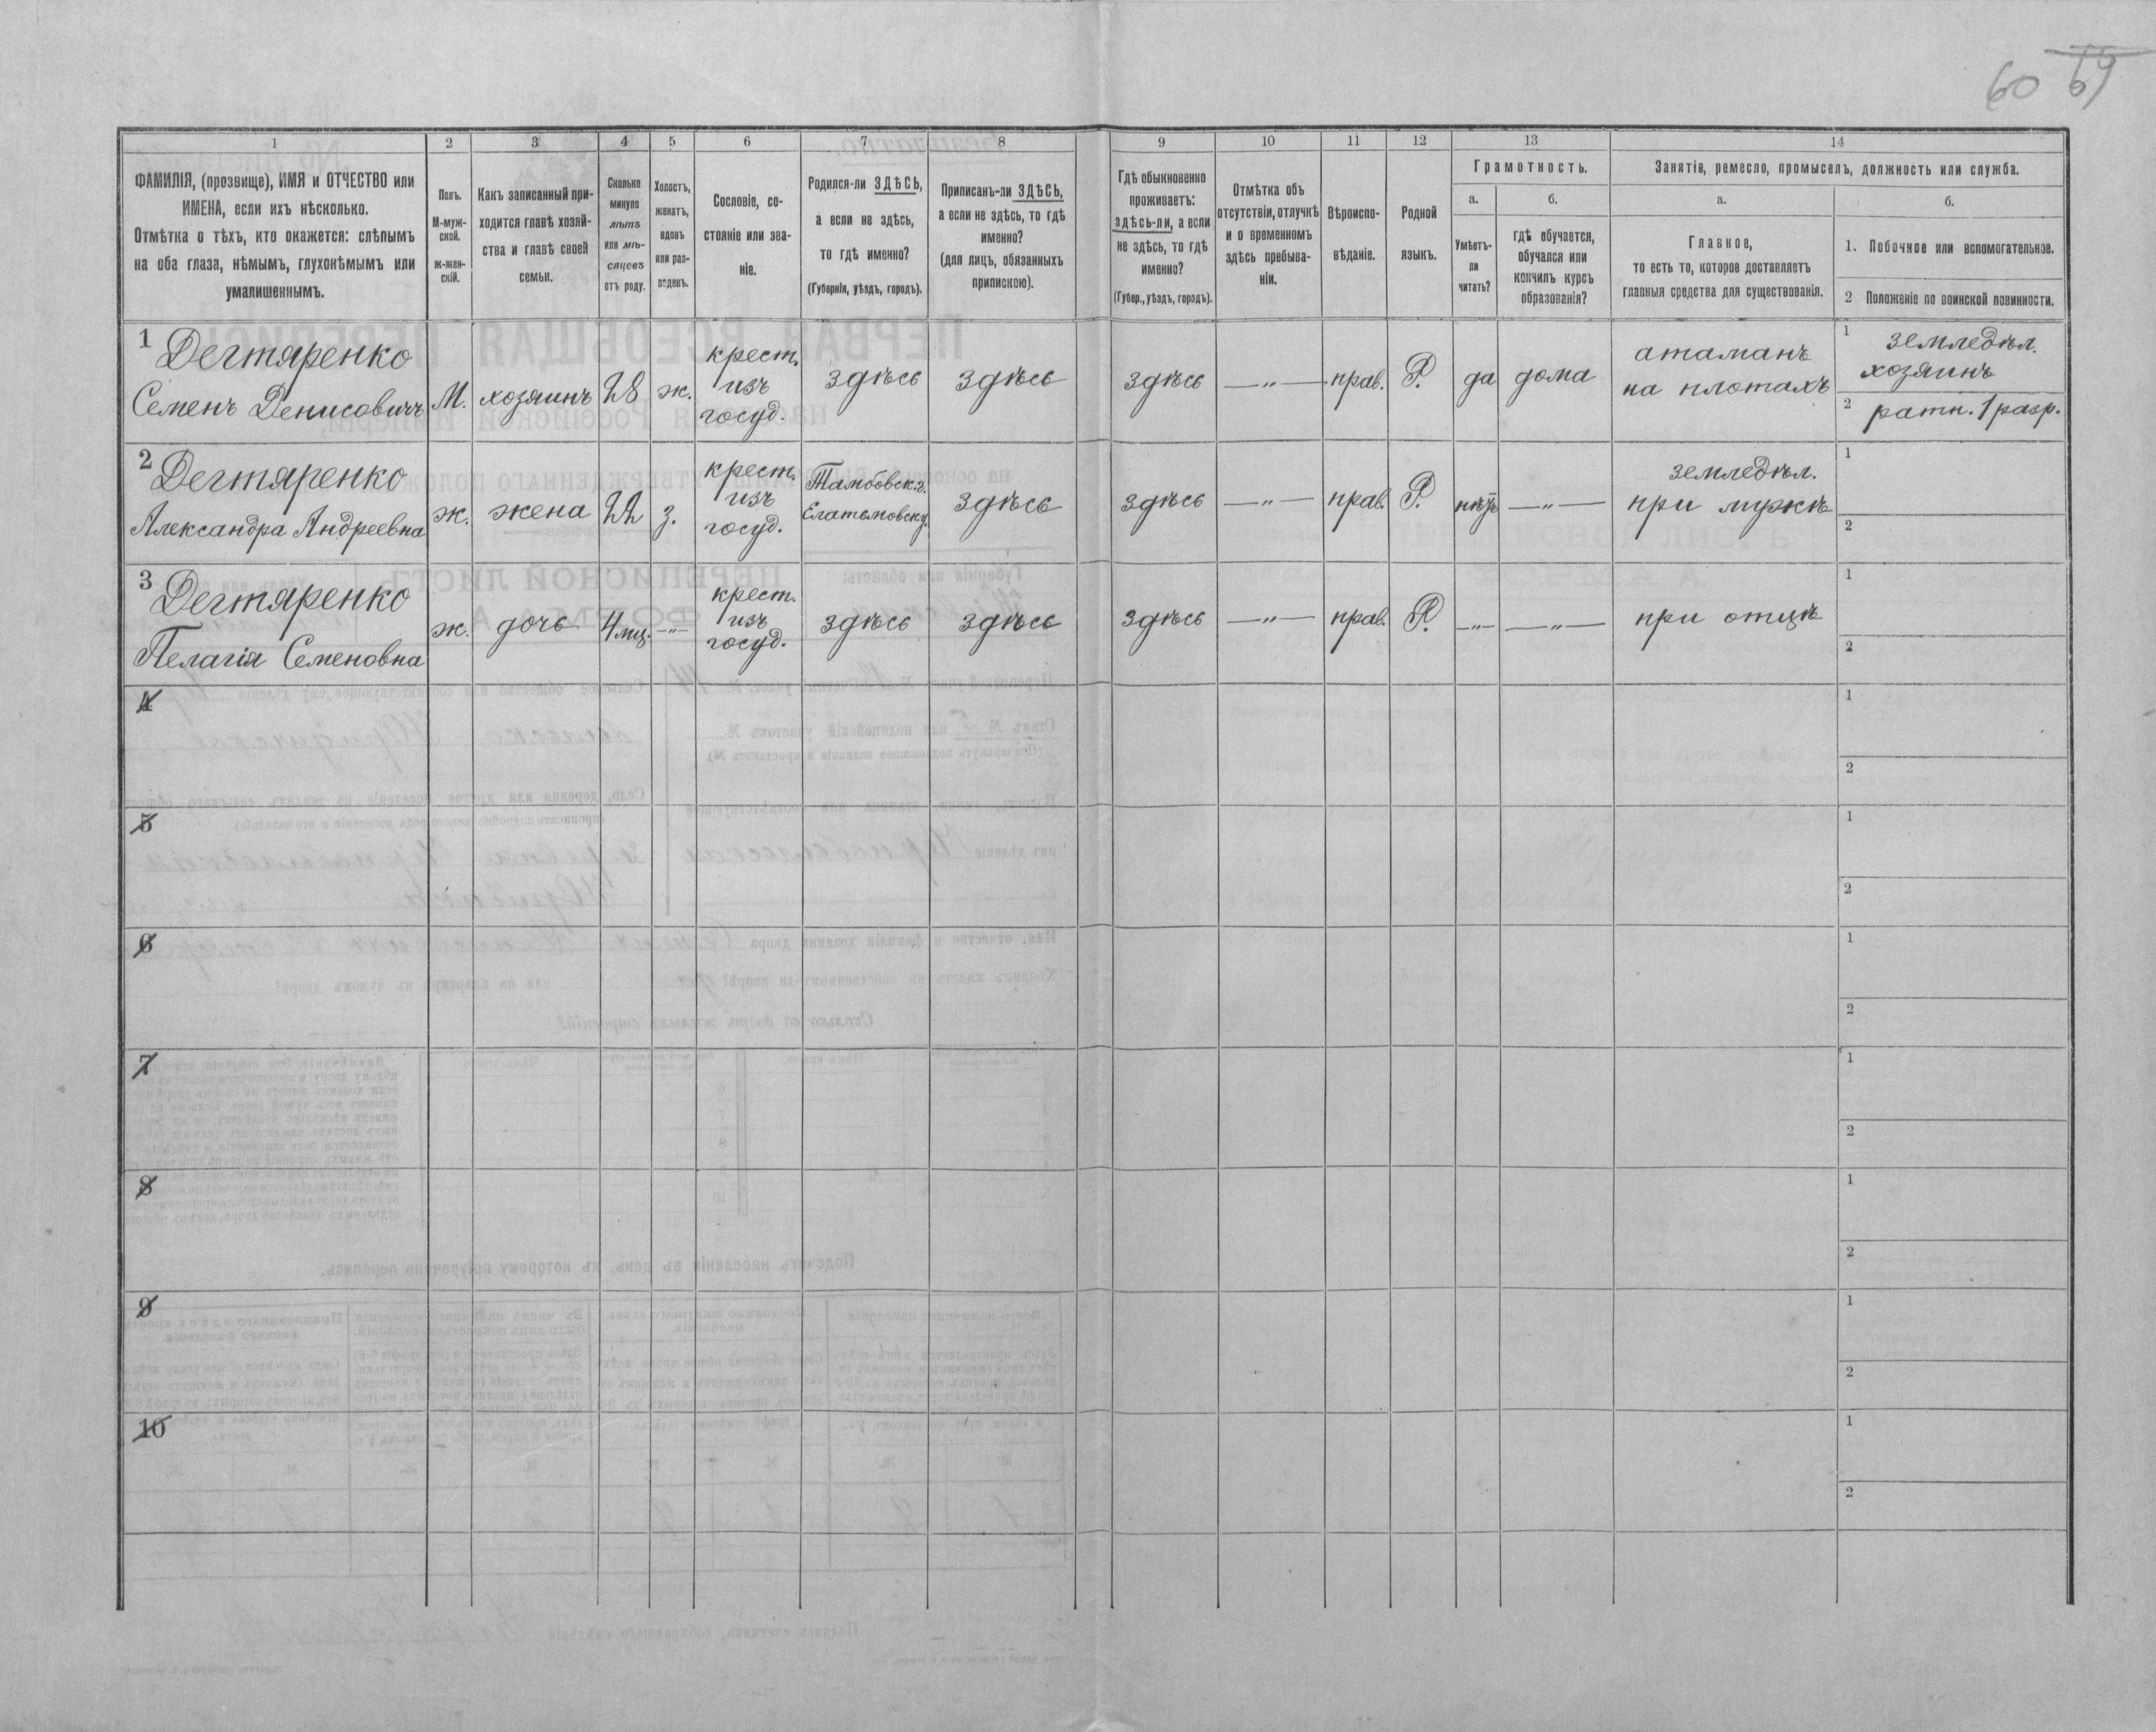 60 69
1
2
3
4
5
6
7
8
9
10
11
12
13
14
ФАМИЛІЯ, (прозвище), ИМЯ и ОТЧЕСТВО или
ИМЕНА, если ихъ нѣсколько.
Отмѣтка о тѣхъ, кто окажется: слѣпымъ
на оба глаза, нѣмымъ, глухонѣмымъ или
умалишеннымъ.
Полъ.
М-муж-
ской.
ж-жен-
скій.
Какъ записанный при-
ходится главѣ хозяй-
ства и главѣ своей
семьи.
Сколько
минуло
лѣтъ
или мѣ-
сяцевъ
отъ роду.
Холостъ,
женатъ,
вдовъ
или раз-
веденъ.
Сословіе, со-
стояніе или зва-
ніе.
Родился-ли ЗДѢСЬ,
а если не здѣсь,
то гдѣ именно?
(Губернія, уѣздъ, городъ).
Приписанъ-ли ЗДѢСЬ,
а если не здѣсь, то гдѣ
именно?
(для лицъ, обязанныхъ
припискою).
Гдѣ обыкновенно
проживаетъ:
здѣсь-ли, а если
не здѣсь, то гдѣ
именно?
(Губер., уѣздъ, городъ).
Отмѣтка объ
отсутствіи, отлучкѣ
и о временномъ
здѣсь пребыва-
ніи.
Вѣроиспо-
вѣданіе.
Родной
языкъ.
Грамотность.
а.
Умѣетъ-
ли
читать?
б.
гдѣ обучается,
обучался или
кончилъ курсъ
образованія?
Занятіе, ремесло, промыселъ, должность или служба.
а.
Главное,
то есть то, которое доставляетъ
главныя средства для существованія.
б.
1. Побочное или вспомогательное.
2 Положеніе по воинской повинности.
1 Дегтяренко
Семенъ Денисовичъ
М.
хозяинъ
28
ж.
крест.
изъ
госуд.
здѣсь
здѣсь
здѣсь
—„—
прав.
Р.
да
дома
атаманъ
на плотахъ
1 земледѣл.
хозяинъ
2 ратн. 1 разр.
2 Дегтяренко
Александра Андреевна
ж.
жена
22
з.
крест.
изъ
госуд.
Тамбовск. г.
Елатьмовск у.
здѣсь
здѣсь
—„—
прав.
Р.
нѣтъ
—„—
земледѣл.
при мужѣ
1
2
3 Дегтяренко
Пелагія Семеновна
ж.
дочь
4 мц.
—„—
крест.
изъ
госуд.
здѣсь
здѣсь
здѣсь
—„—
прав.
Р.
—„—
—„—
при отцѣ
1
2
4
1
2
5
1
2
6
1
2
7
1
2
8
1
2
9
1
2
10
1
2